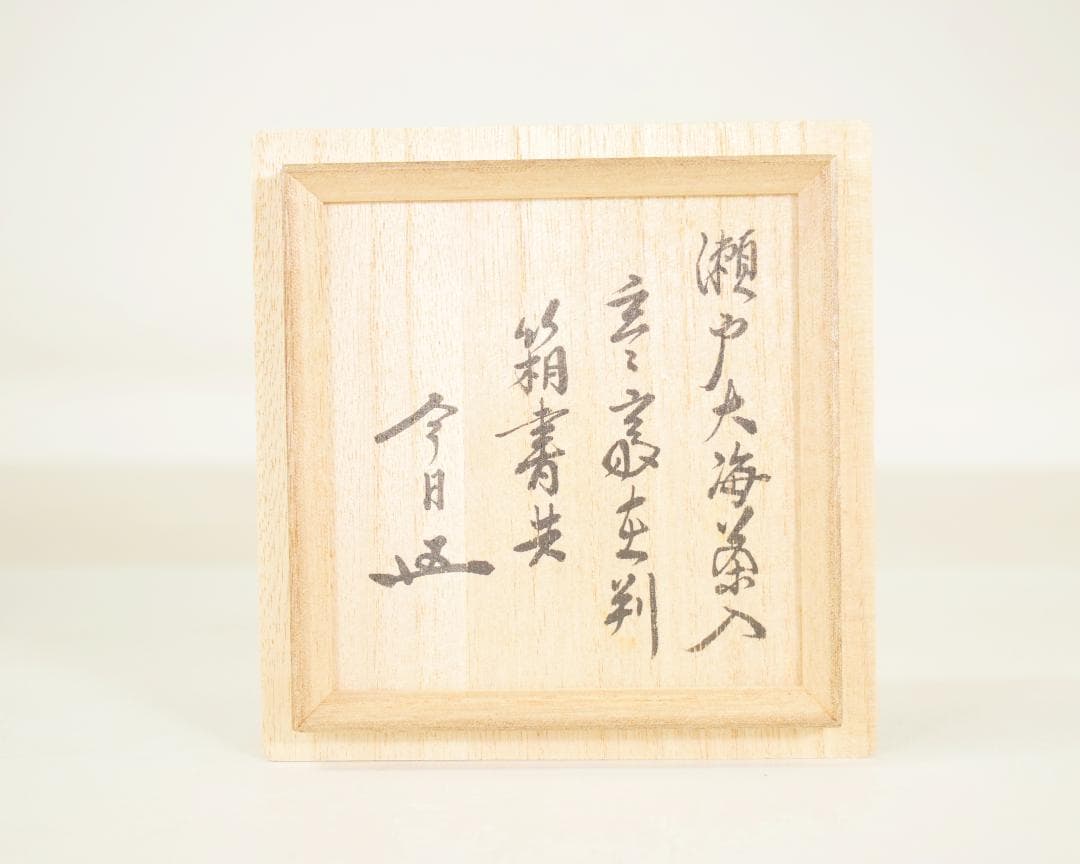 瀬戸大海茶入
玄々斎在判
箱書共
今日